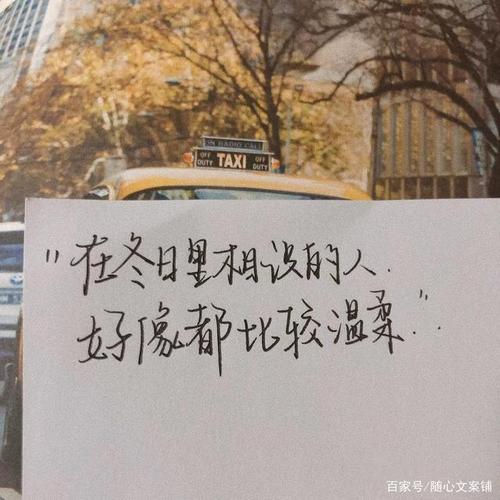 ON RADIO CALL
OFF DUTY TAXI OFF DUTY
"在冬日里相识的人.
好像都比较温柔."
百家号/随心文案铺